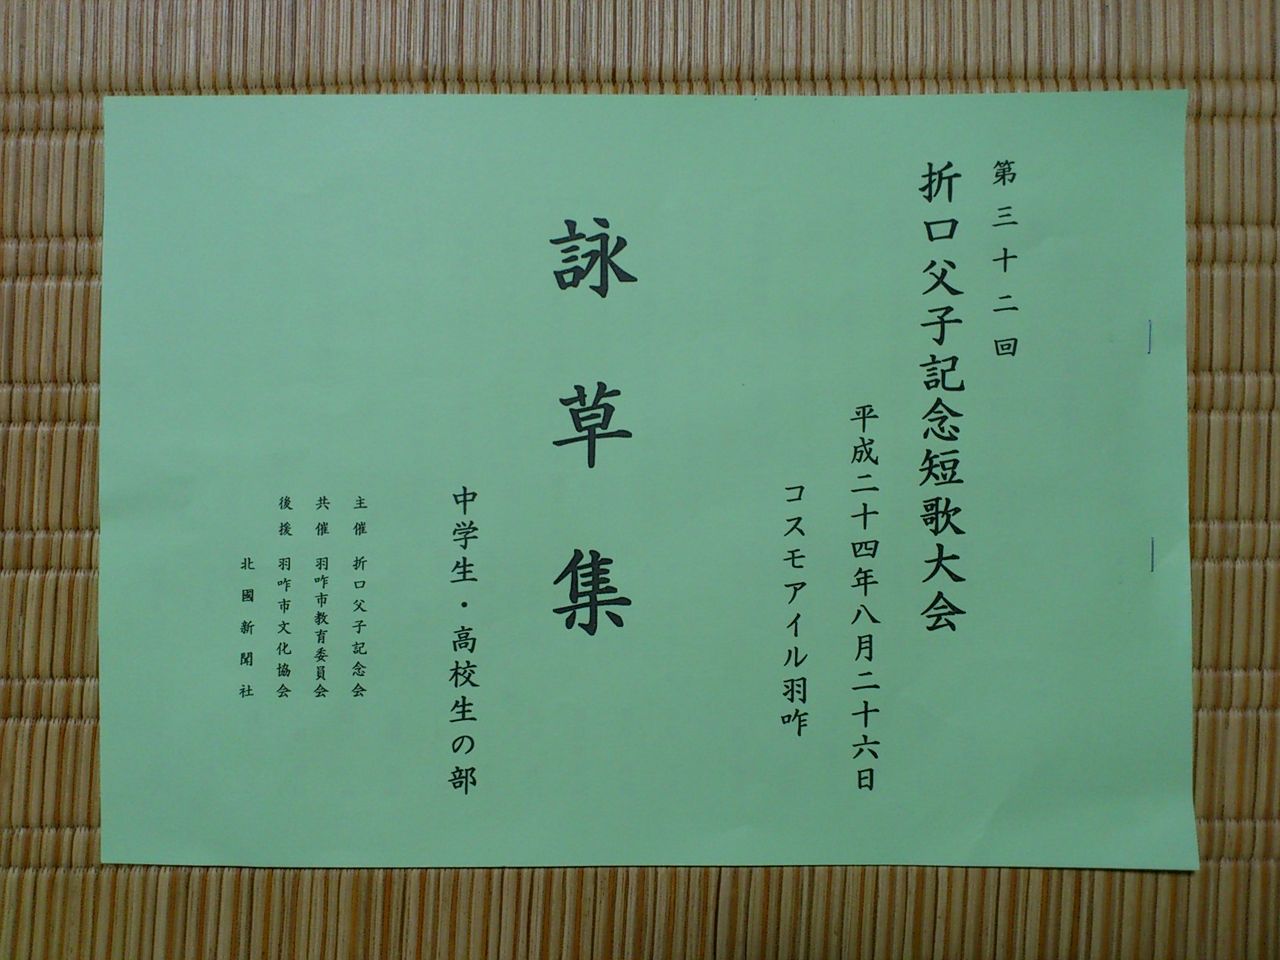 第三十二回
折口父子記念短歌大会
平成二十四年八月二十六日
コスモアイル羽咋
詠草集
中学生・高校生の部
主催 折口父子記念会
共催 羽咋市教育委員会
後援 羽咋市文化協会
北國新聞社